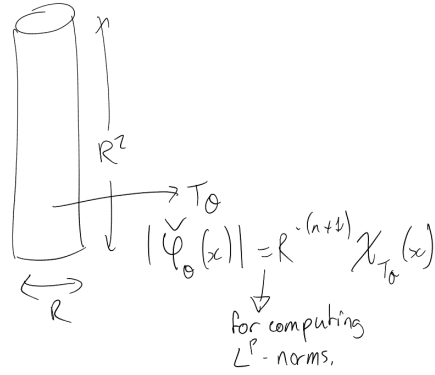 R²
T_θ
|φ̌_θ(x)| = R^{-(n+1)} χ_{T_θ}(x)
R
for computing
L^p-norms.